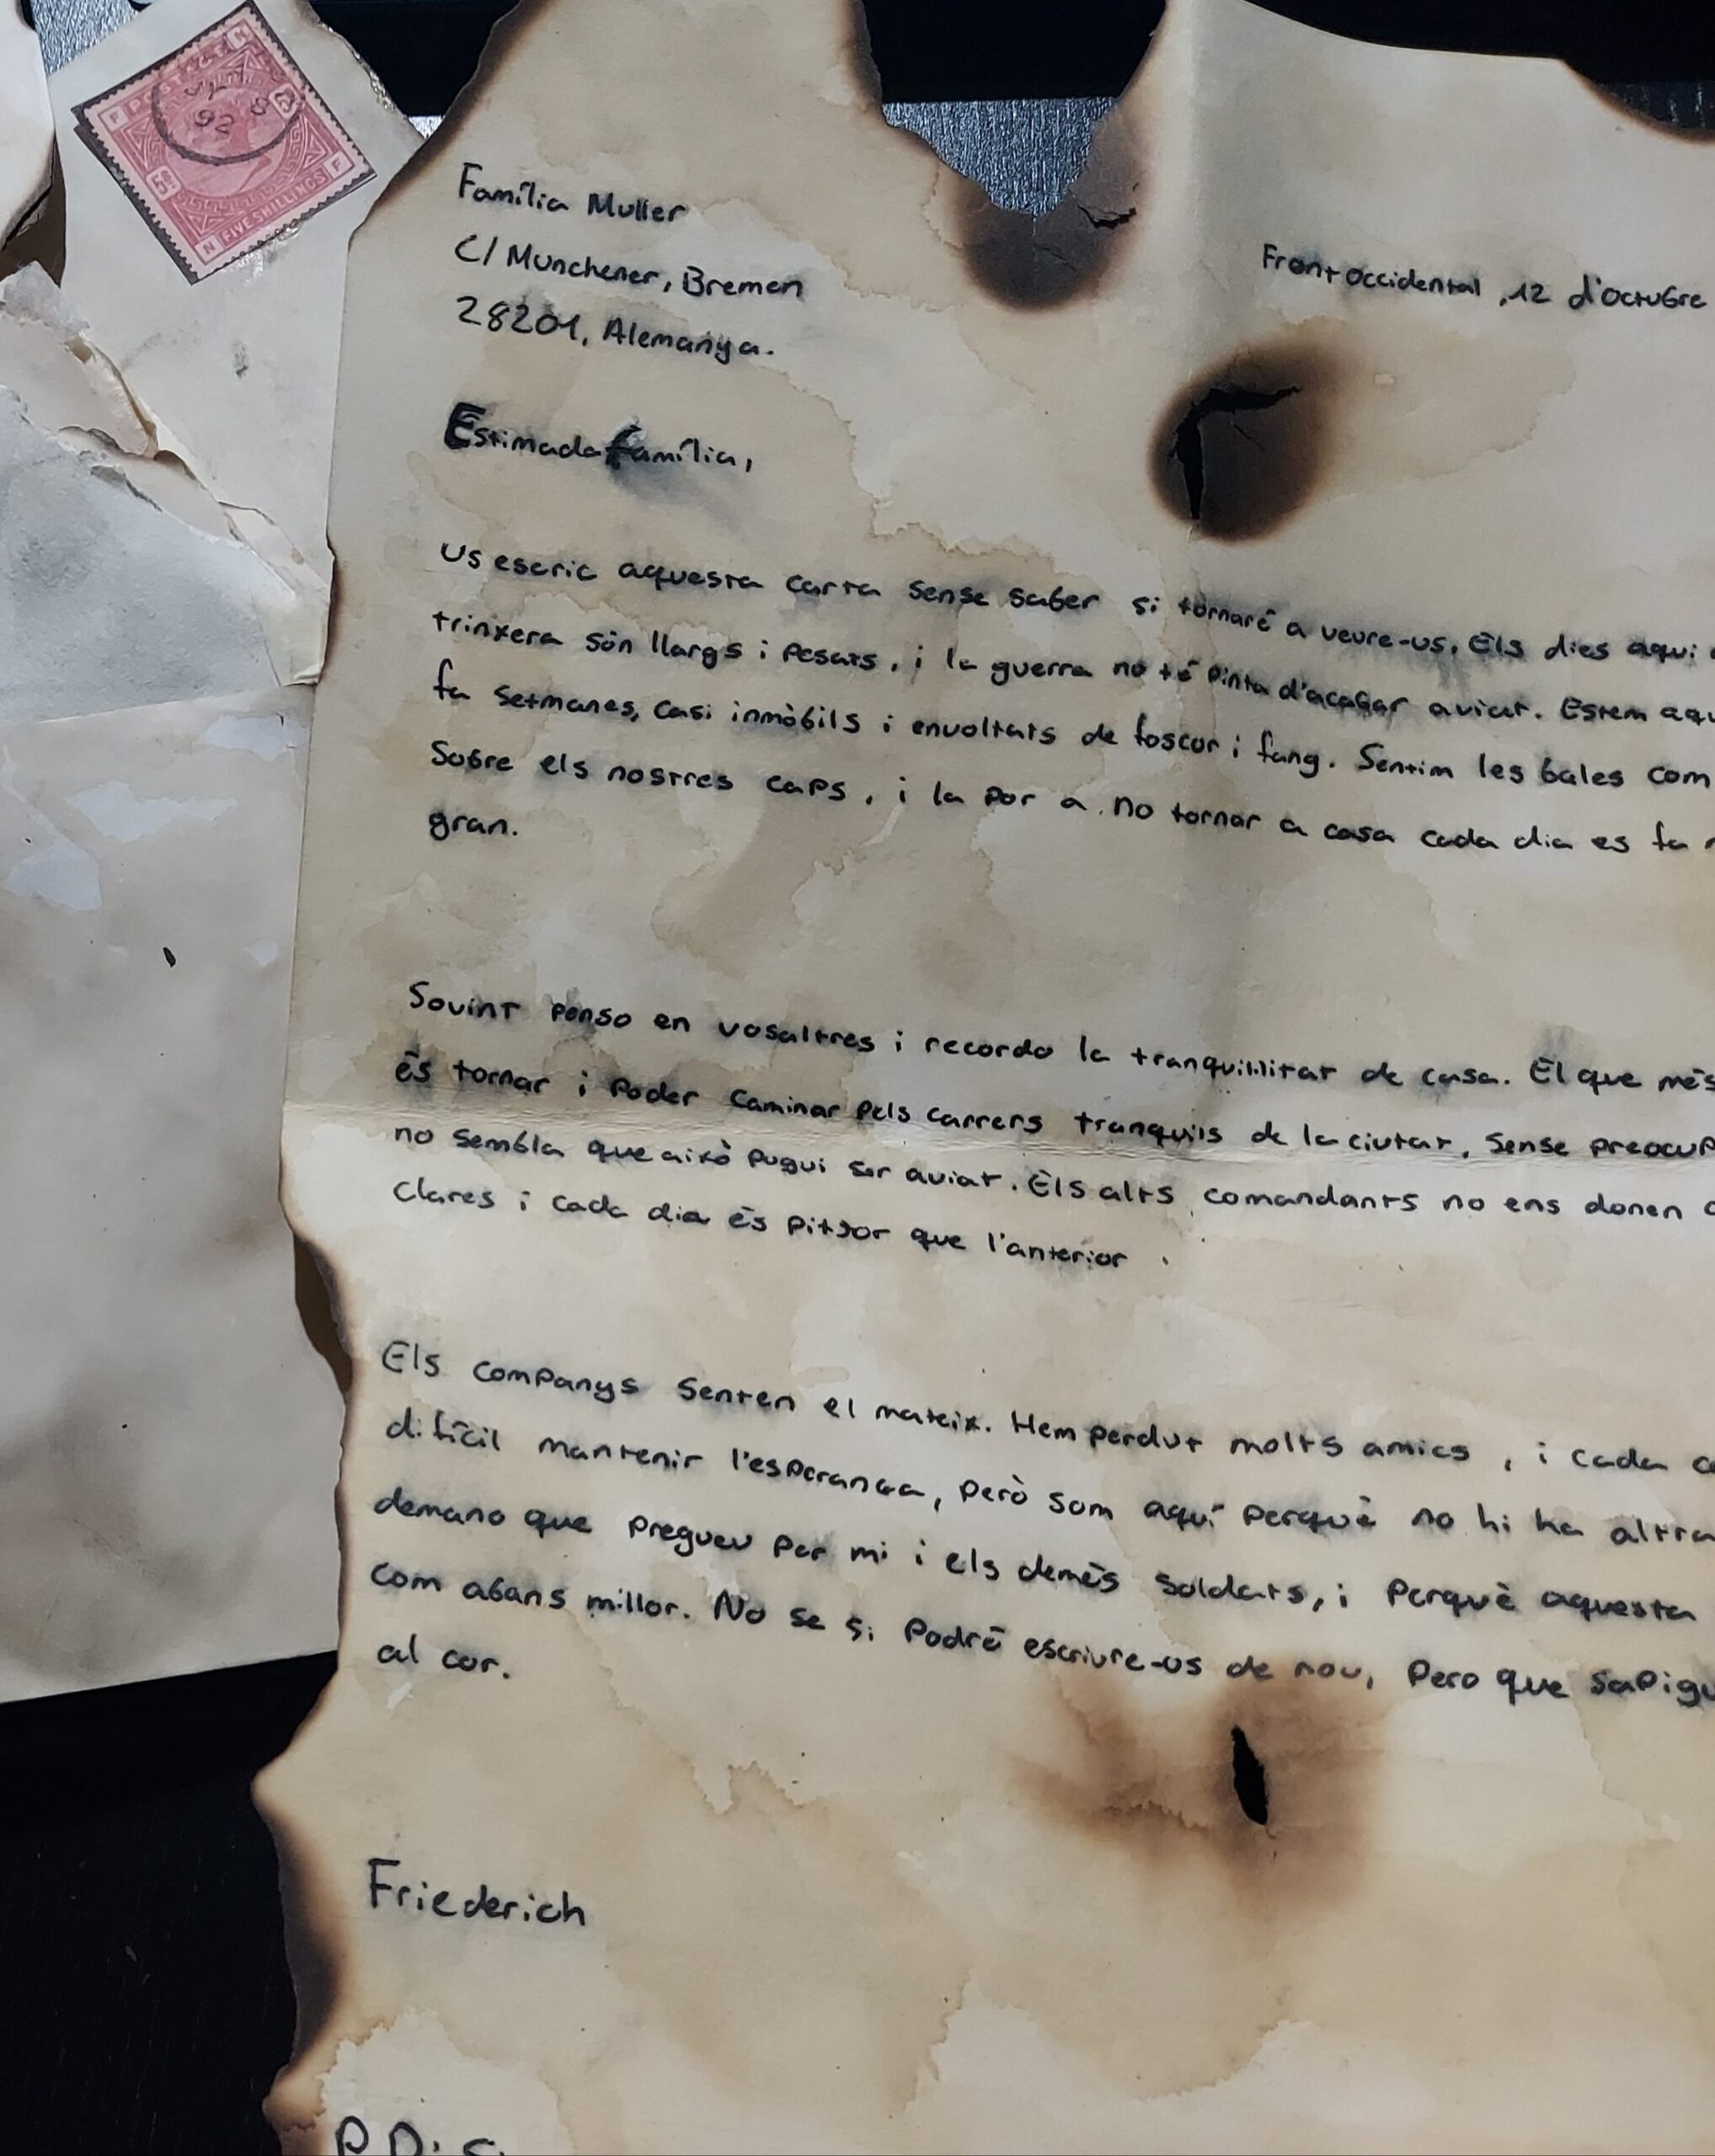 POSTAGE
FIVE SHILLINGS
Família Muller
C/ Munchener, Bremen
28201, Alemanya.
Front occidental, 12 d'octubre
Estimada família,
Us escric aquesta carta sense saber si tornaré a veure-us. Els dies aquí
trinxera són llargs i pesats, i la guerra no té pinta d'acabar aviat. Estem
fa setmanes, casi inmòbils i envoltats de foscor i fang. Sentim les bales com
Sobre els nostres caps, i la por a no tornar a casa cada dia es fa
gran.
Sovint penso en vosaltres i recordo la tranquil·litat de casa. El que més
és tornar i poder caminar pels carrers tranquils de la ciutat, sense
no sembla que això pugui ser aviat. Els alts comandants no ens donen
Clares i cada dia és pitjor que l'anterior.
Els companys senten el mateix. Hem perdut molts amics, i cada
difícil mantenir l'esperança, però som aquí perquè no hi ha altra
demano que pregueu per mi i els demés soldats, i perquè aquesta
com abans millor. No se si podré escriure-us de nou, pero que
al cor.
Friederich
P.D: Si